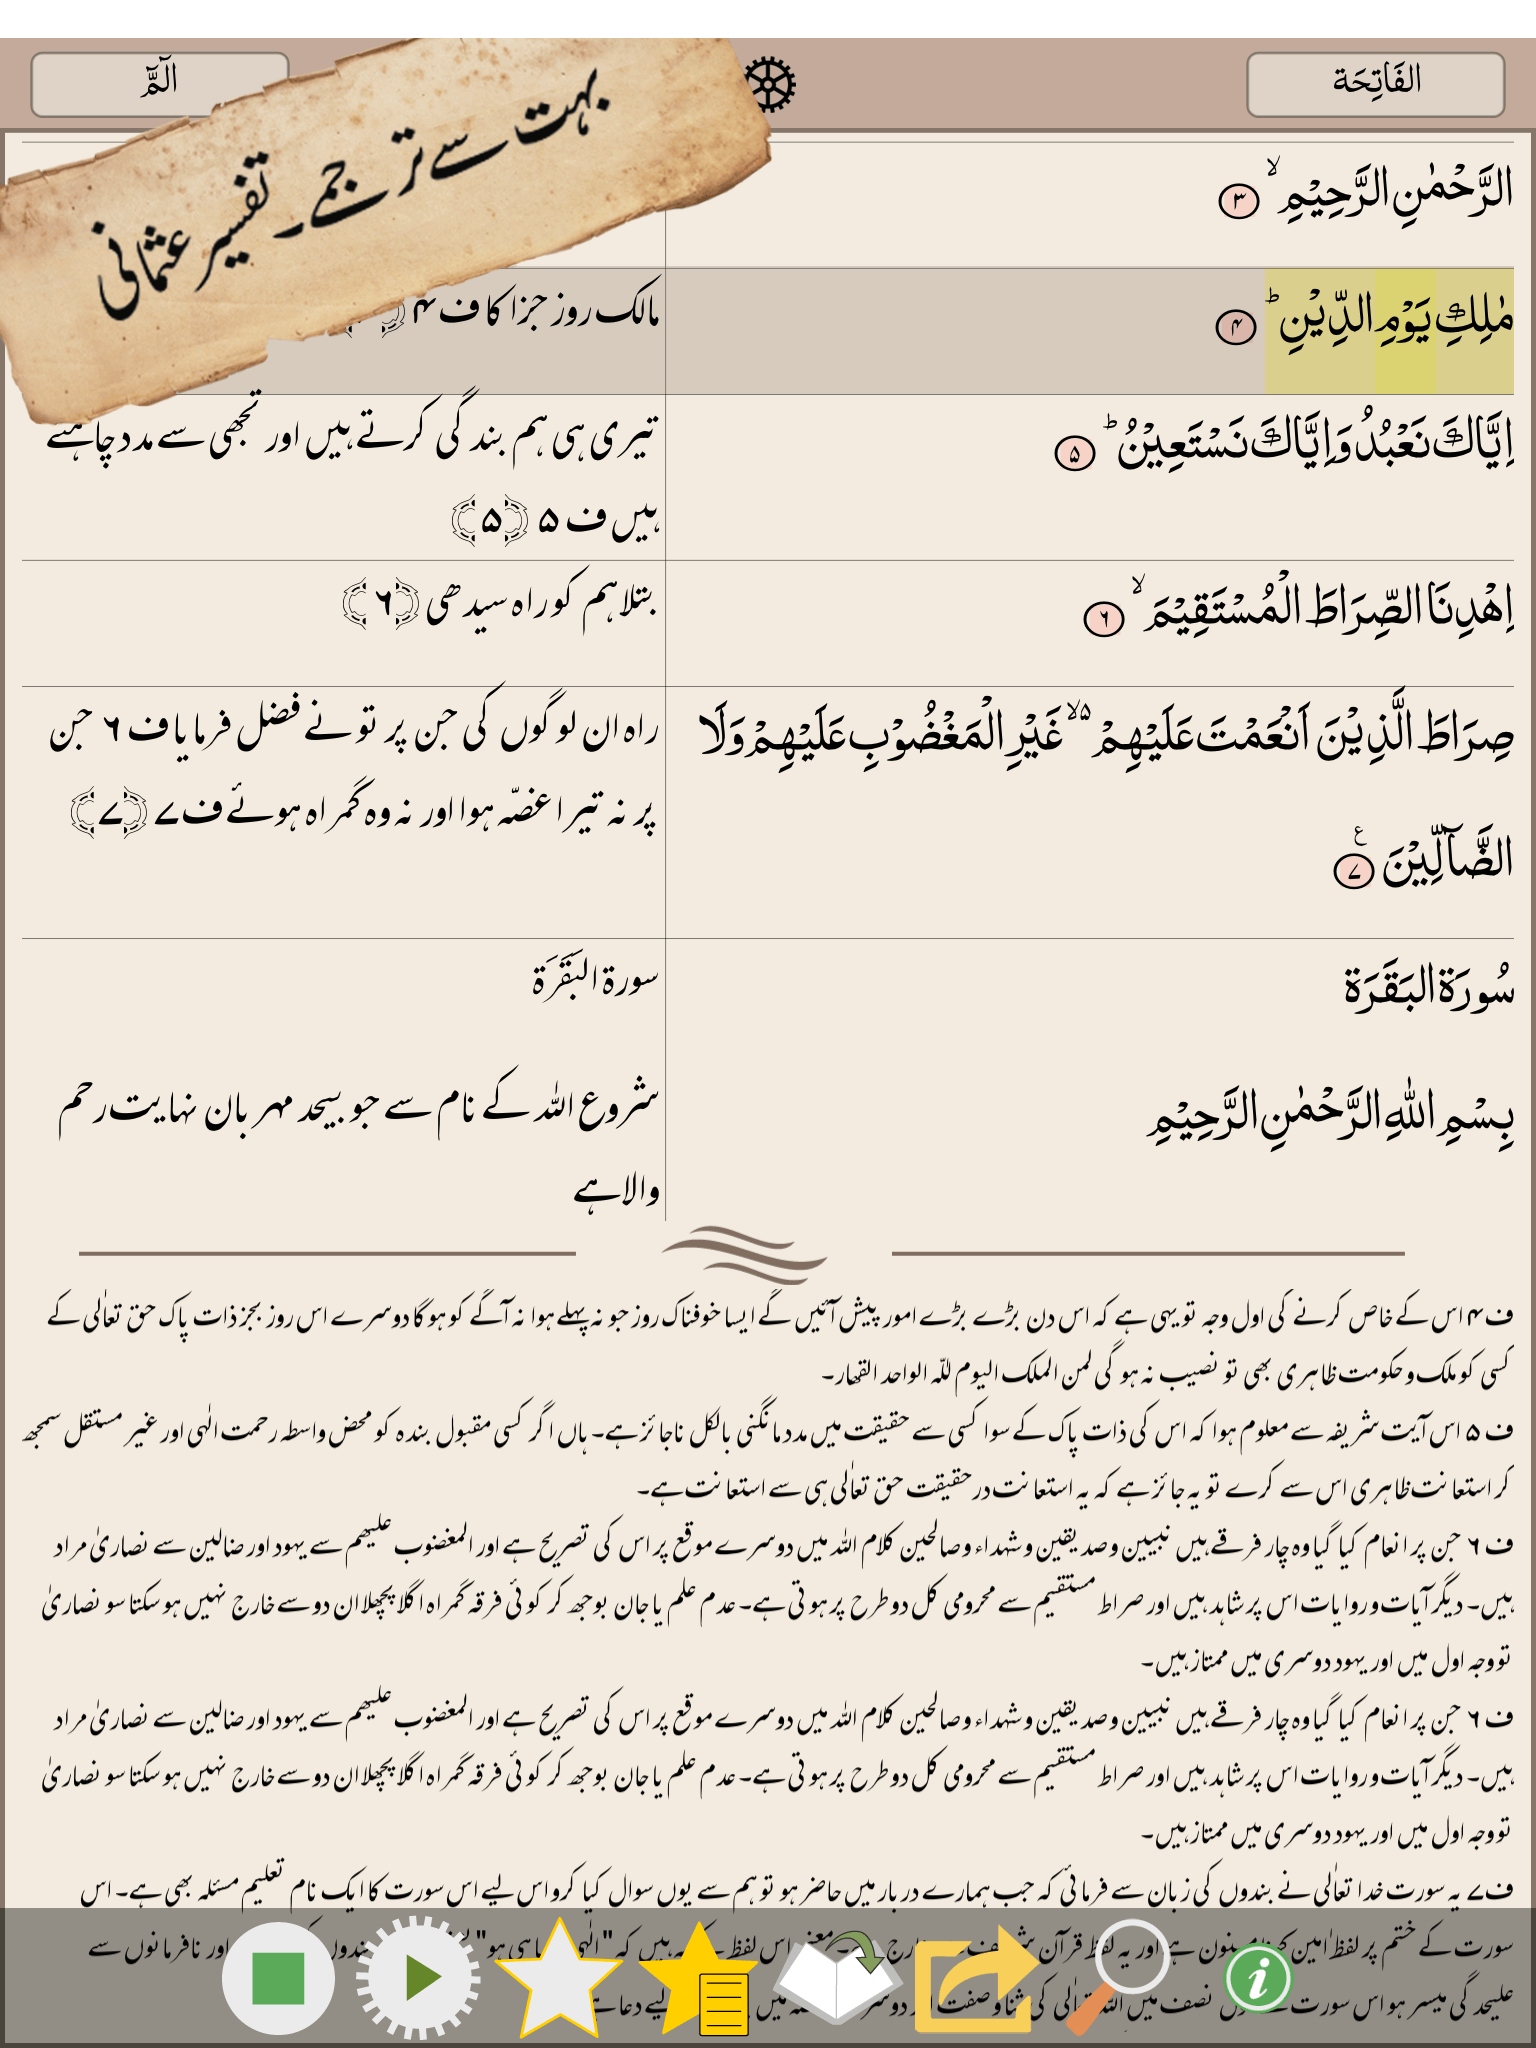 الفَاتِحَة
الٓمّٓ
بہت سے ترجمے۔ تفسیر عثمانی
الرَّحْمٰنِ الرَّحِيْمِ ۙ ۳
مٰلِكِ يَوْمِ الدِّيْنِ ؕ ۴
مالک روز جزا کا ف ۴
اِيَّاكَ نَعْبُدُ وَاِيَّاكَ نَسْتَعِيْنُ ؕ ۵
تیری ہی ہم بندگی کرتے ہیں اور تجھی سے مدد چاہتے
ہیں ف ۵ ﴿۵﴾
اِهْدِنَا الصِّرَاطَ الْمُسْتَقِيْمَ ۙ ۶
بتلا ہم کو راہ سیدھی ﴿۶﴾
صِرَاطَ الَّذِيْنَ اَنْعَمْتَ عَلَيْهِمْ ۙ۵ غَيْرِ الْمَغْضُوْبِ عَلَيْهِمْ وَلَا
الضَّآلِّيْنَ ۷ ع
راہ ان لوگوں کی جن پر تو نے فضل فرمایا ف ۶ جن
پر نہ تیرا غصّہ ہوا اور نہ وہ گمراہ ہوئے ف ۷ ﴿۷﴾
سُورَة البَقَرَة
سورة البَقَرَة
بِسْمِ اللهِ الرَّحْمٰنِ الرَّحِيْمِ
شروع اللہ کے نام سے جو بیحد مہربان نہایت رحم
والا ہے
ف ۴ اس کے خاص کرنے کی اول وجہ تو یہی ہے کہ اس دن بڑے بڑے امور پیش آئیں گے ایسا خوفناک روز جو نہ پہلے ہوا نہ آگے کو ہو گا دوسرے اس روز بجز ذات پاک حق تعالٰی کے
کسی کو ملک و حکومت ظاہری بھی تو نصیب نہ ہو گی لمن الملک الیوم للّٰہ الواحد القھار۔
ف ۵ اس آیت شریفہ سے معلوم ہوا کہ اس کی ذات پاک کے سوا کسی سے حقیقت میں مدد مانگنی بالکل ناجائز ہے۔ ہاں اگر کسی مقبول بندہ کو محض واسطہ رحمت الٰہی اور غیر مستقل سمجھ
کر استعانت ظاہری اس سے کرے تو یہ جائز ہے کہ یہ استعانت درحقیقت حق تعالٰی ہی سے استعانت ہے۔
ف ۶ جن پر انعام کیا گیا وہ چار فرقے ہیں نبیین و صدیقین و شہداء و صالحین کلام اللہ میں دوسرے موقع پر اس کی تصریح ہے اور المغضوب علیھم سے یہود اور ضالین سے نصاریٰ مراد
ہیں۔ دیگر آیات و روایات اس پر شاہد ہیں اور صراط مستقیم سے محرومی کل دو طرح پر ہوتی ہے۔ عدم علم یا جان بوجھ کر کوئی فرقہ گمراہ اگلا پچھلا ان دو سے خارج نہیں ہو سکتا سو نصاریٰ
تو وجہ اول میں اور یہود دوسری میں ممتاز ہیں۔
ف ۶ جن پر انعام کیا گیا وہ چار فرقے ہیں نبیین و صدیقین و شہداء و صالحین کلام اللہ میں دوسرے موقع پر اس کی تصریح ہے اور المغضوب علیھم سے یہود اور ضالین سے نصاریٰ مراد
ہیں۔ دیگر آیات و روایات اس پر شاہد ہیں اور صراط مستقیم سے محرومی کل دو طرح پر ہوتی ہے۔ عدم علم یا جان بوجھ کر کوئی فرقہ گمراہ اگلا پچھلا ان دو سے خارج نہیں ہو سکتا سو نصاریٰ
تو وجہ اول میں اور یہود دوسری میں ممتاز ہیں۔
ف ۷ یہ سورت خدا تعالٰی نے بندوں کی زبان سے فرمائی کہ جب ہمارے دربار میں حاضر ہو تو ہم سے یوں سوال کیا کرو اس لیے اس سورت کا ایک نام تعلیم مسئلہ بھی ہے۔ اس
سورت کے ختم پر لفظ اٰمین مسنون ہے اور یہ لفظ قرآن اس لفظ ہیں کہ "الٰہی سا ہی ہو" اور نافرمانوں سے
علیحدگی میسر ہو اس سورت نصف میں اللہ تعالٰی کی ثنا و صفت میں لیے دعا